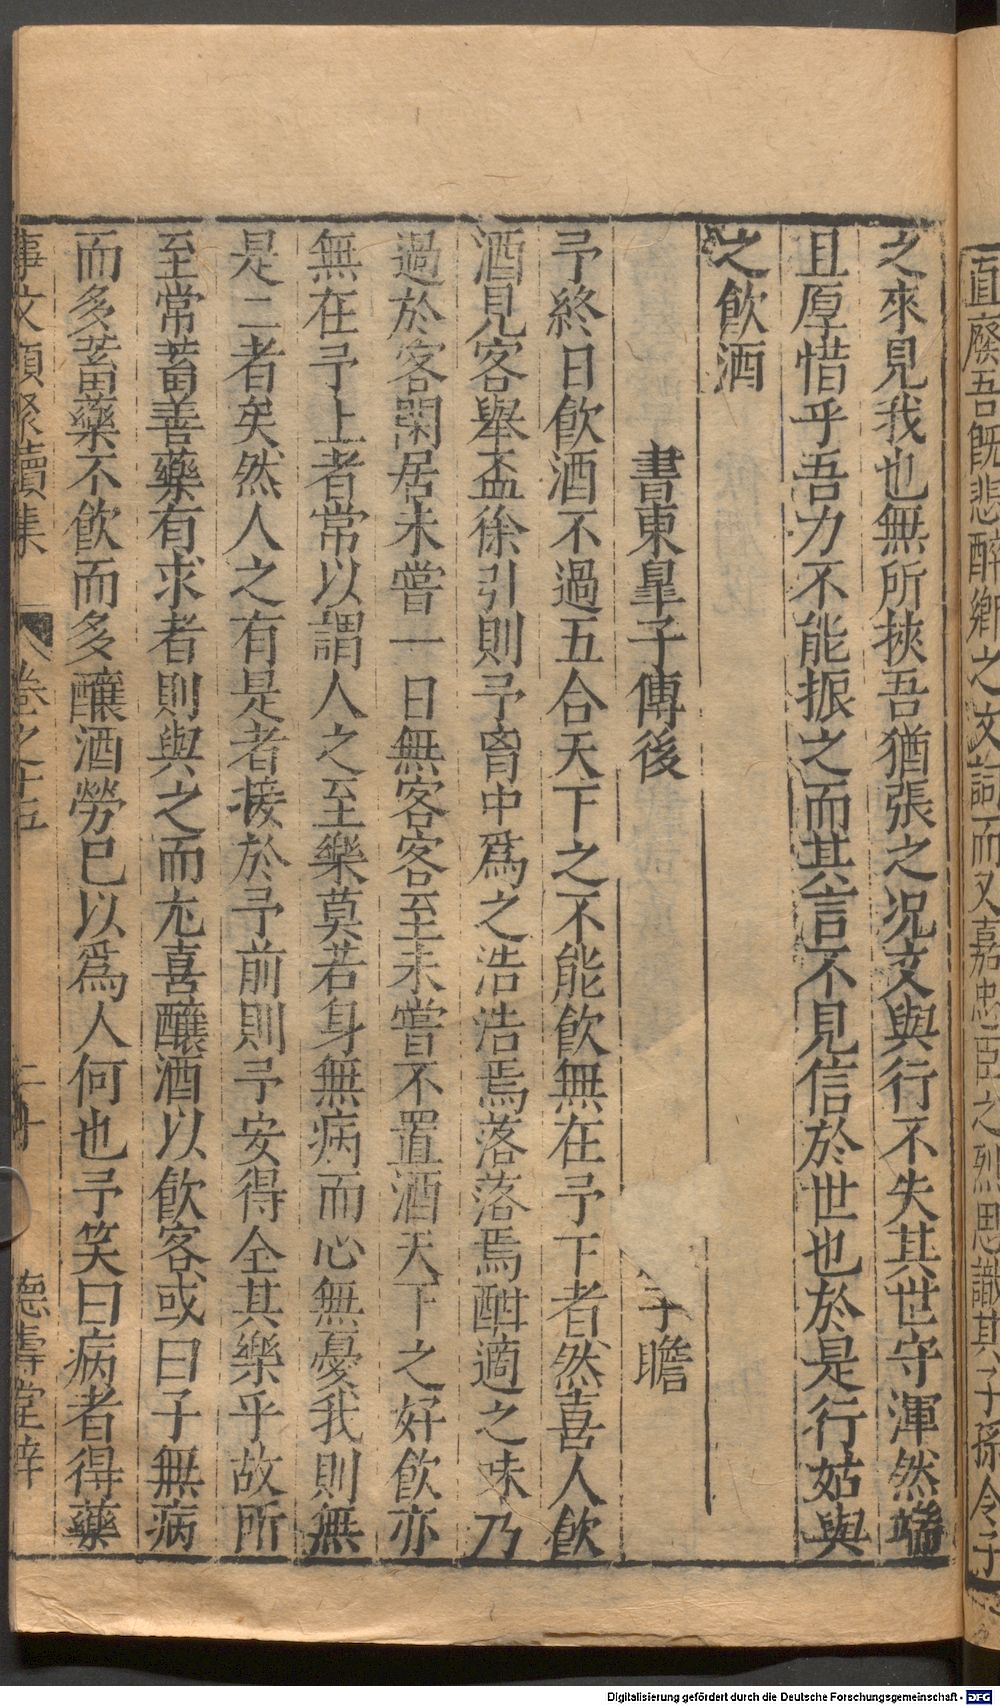 直廢吾既悲醉鄉之文詞而又嘉忠臣之烈思識其子孫今子
之來見我也無所挾吾猶張之况文與行不失其世守渾然端
且厚惜乎吾力不能振之而其言不見信於世也於是行姑與
之飲酒
書東臯子傳後
子瞻
予終日飲酒不過五合天下之不能飲無在予下者然喜人飲
酒見客舉盃徐引則予胷中爲之浩浩焉落落焉酣適之味乃
過於客閑居未嘗一日無客客至未嘗不置酒天下之好飲亦
無在予上者常以謂人之至樂莫若身無病而心無憂我則無
是二者矣然人之有是者接於予前則予安得全其樂乎故所
至常蓄善藥有求者則與之而尤喜釀酒以飲客或曰子無病
而多蓄藥不飲而多釀酒勞已以爲人何也予笑曰病者得藥
事文類聚續集
卷之十五
德壽堂梓
Digitalisierung gefördert durch die Deutsche Forschungsgemeinschaft - DFG